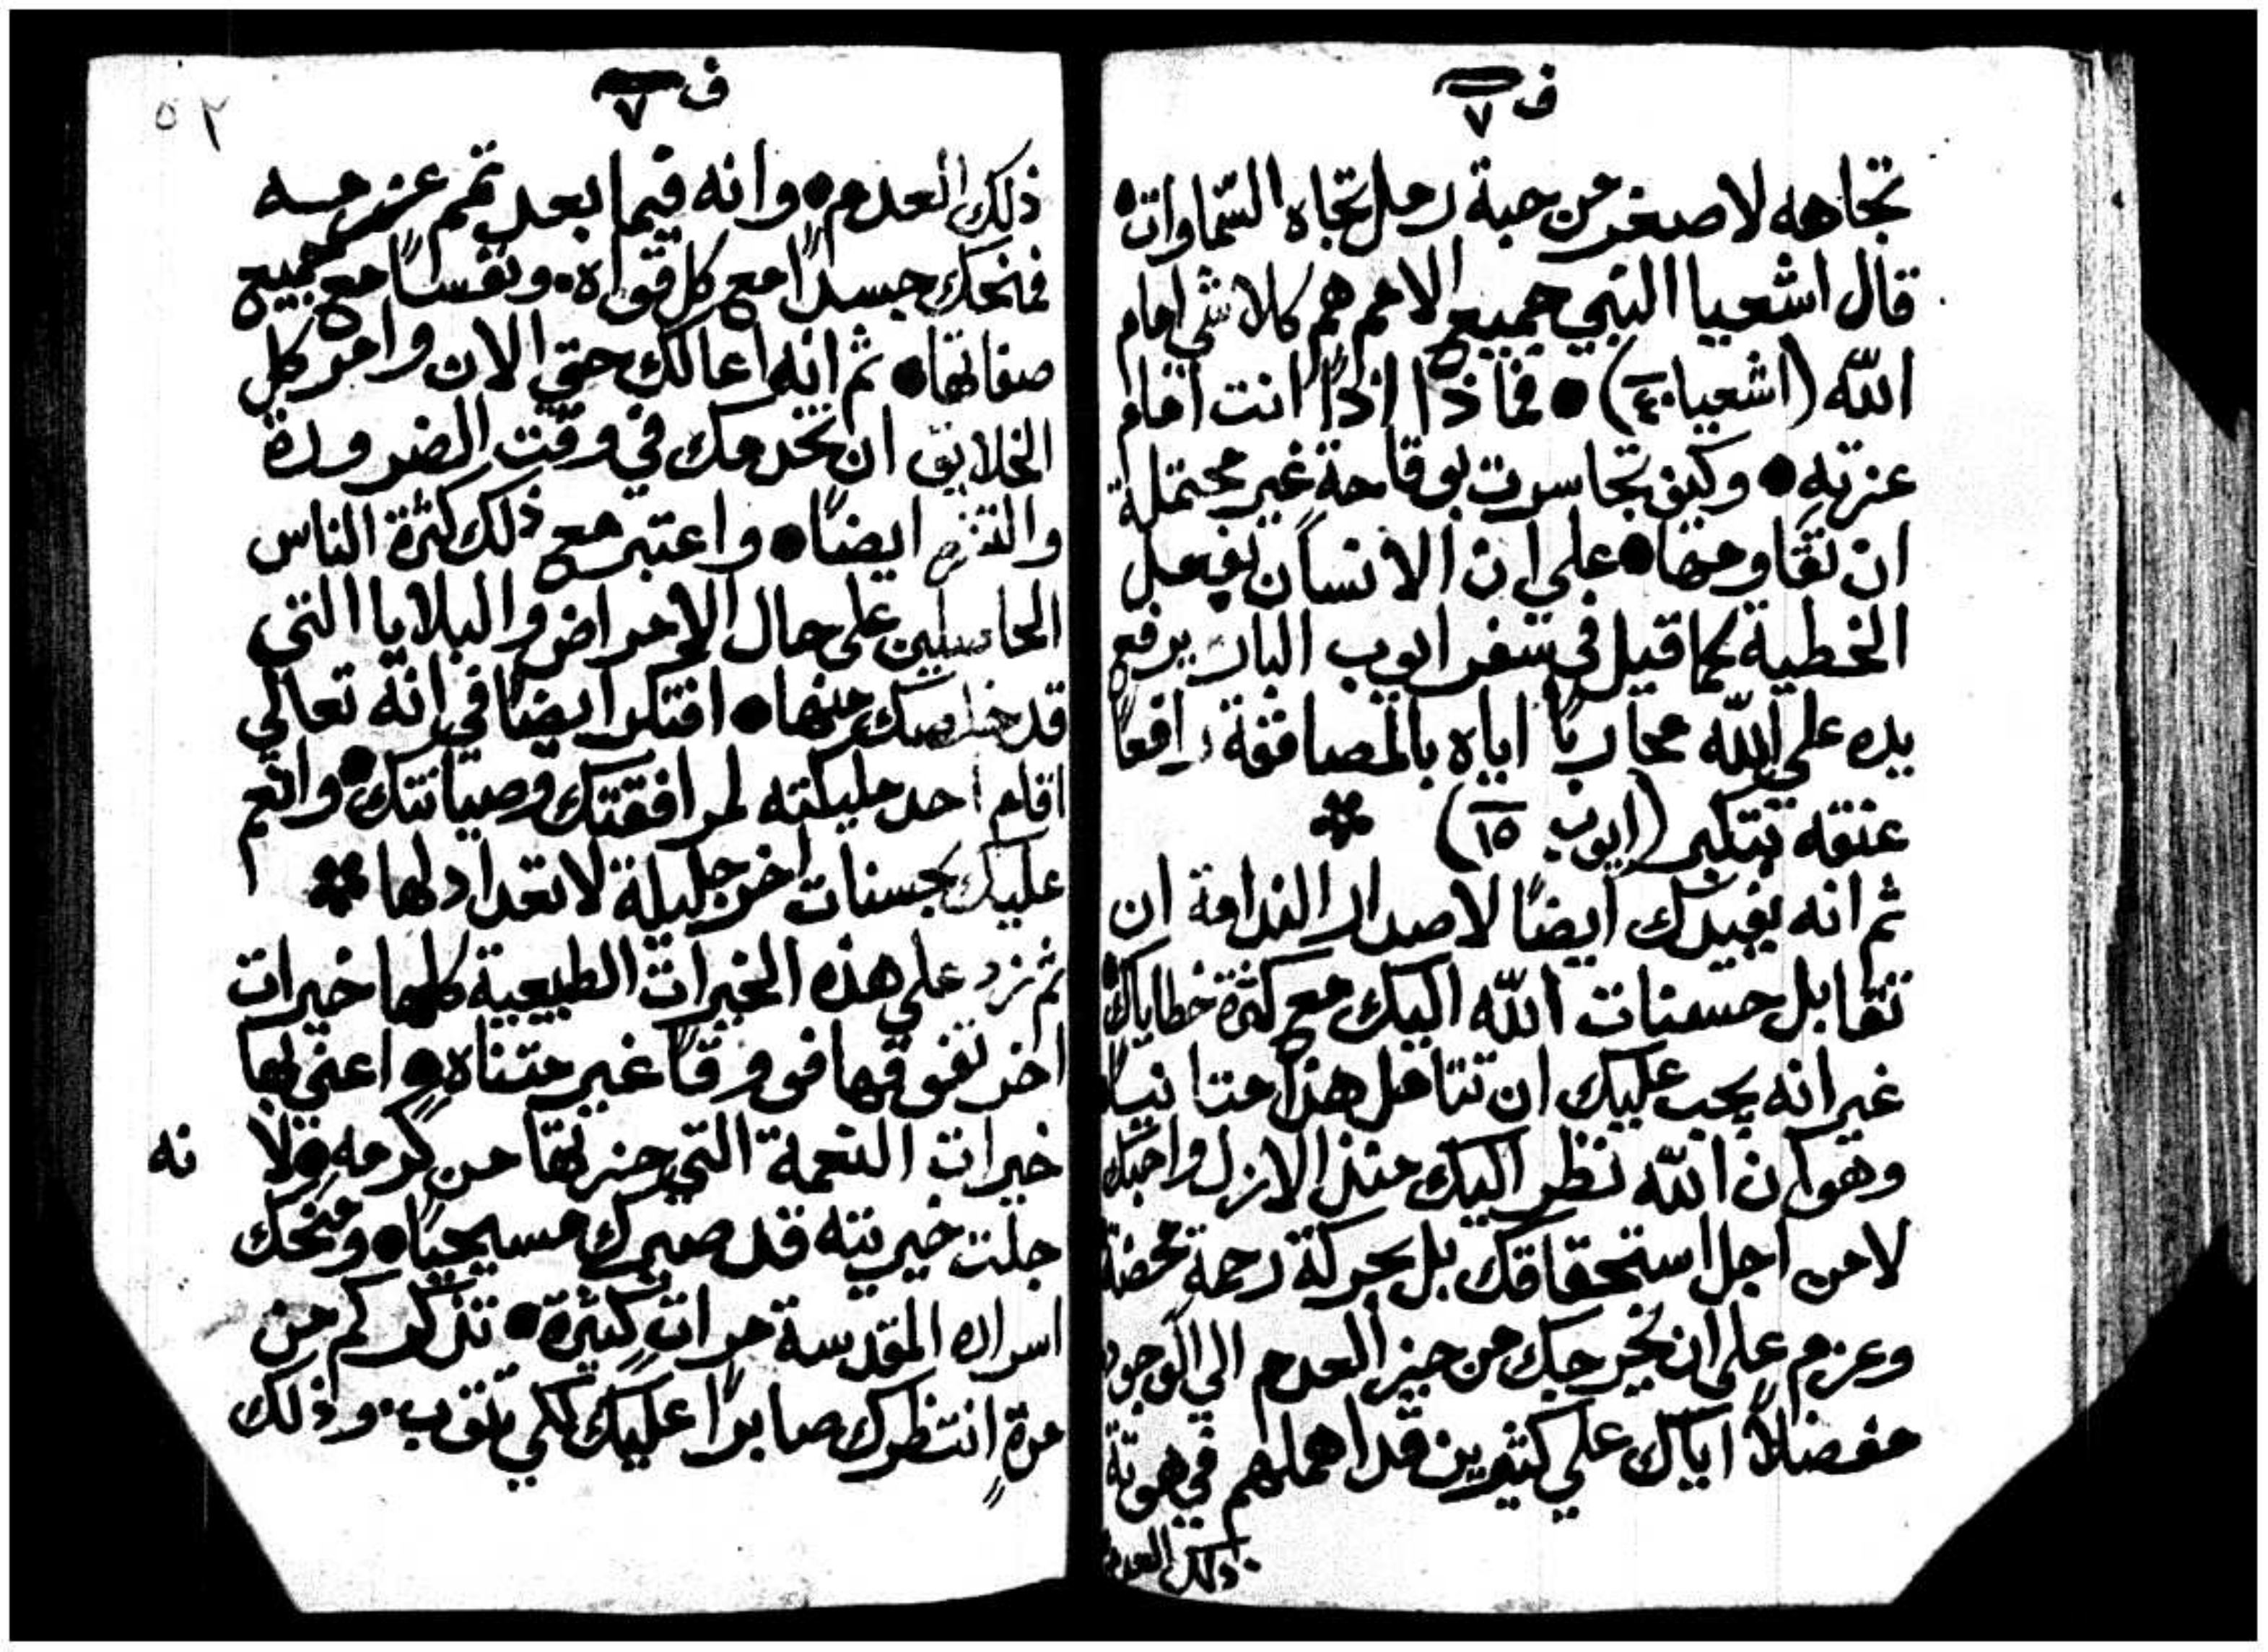 ف ٧
تجاهه لاصغر من حبة رمل تجاه السماوات
قال اشعيا النبي جميع الامم هم كلا شي امام
الله (اشعيا ٤٠) ● فماذا اذًا انت امام
عزته ● وكيف تجاسرت بوقاحة غير محتملة
ان تقاومها ● علي ان الانسان بفعل
الخطية كما قيل في سفر ايوب البار يرفع
يده علي الله محاربًا اياه بالمصافقة رافعًا
عنقه بتكبر (ايوب ١٥)
ثم انه يفيدك ايضًا لاصدار الندامة ان
تقابل حسنات الله اليك مع كثرة خطاياك
غير انه يجب عليك ان تتامل هذا متانيًا
وهو ان الله نظر اليك منذ الازل واحبك
لا من اجل استحقاقك بل بحركة رحمة محضة
وعزم علي ان يخرجك من حيز العدم الي الوجود
مفضلاً اياك علي كثيرين قد اهملهم في هوتة
ذلك العدم
ف ٧
٥٢
ذلك العدم ● وانه فيما بعد تمم عزمه
فمنحك جسدًا مع كل قواه ● ونفسًا مع جميع
صفاتها ● ثم انه اعالك حتي الان وامر كل
الخلايق ان تخدمك في وقت الضرورة
والتنزه ايضًا ● واعتبر مع ذلك كثرة الناس
الحاصلين علي حال الامراض والبلايا التي
قد خلصك منها ● افتكر ايضًا في انه تعالي
اقام احد مليكته لمرافقتك وصيانتك ● وانعم
عليك بحسنات اخر جليلة لا تعداد لها
ثم زد علي هذه الخيرات الطبيعية كلها خيرات
اخر تفوقها فووقًا غير متناهٍ ● اعني بها
خيرات النعمة التي حزتها من كرمه ● ولا نه
جلت خيريته قد صيرك مسيحيًا ● ومنحك
اسراره المقدسة مرات كثيرة ● تذكر كم من
مرةٍ انتظرك صابرًا عليك لكي تتوب ● وذلك